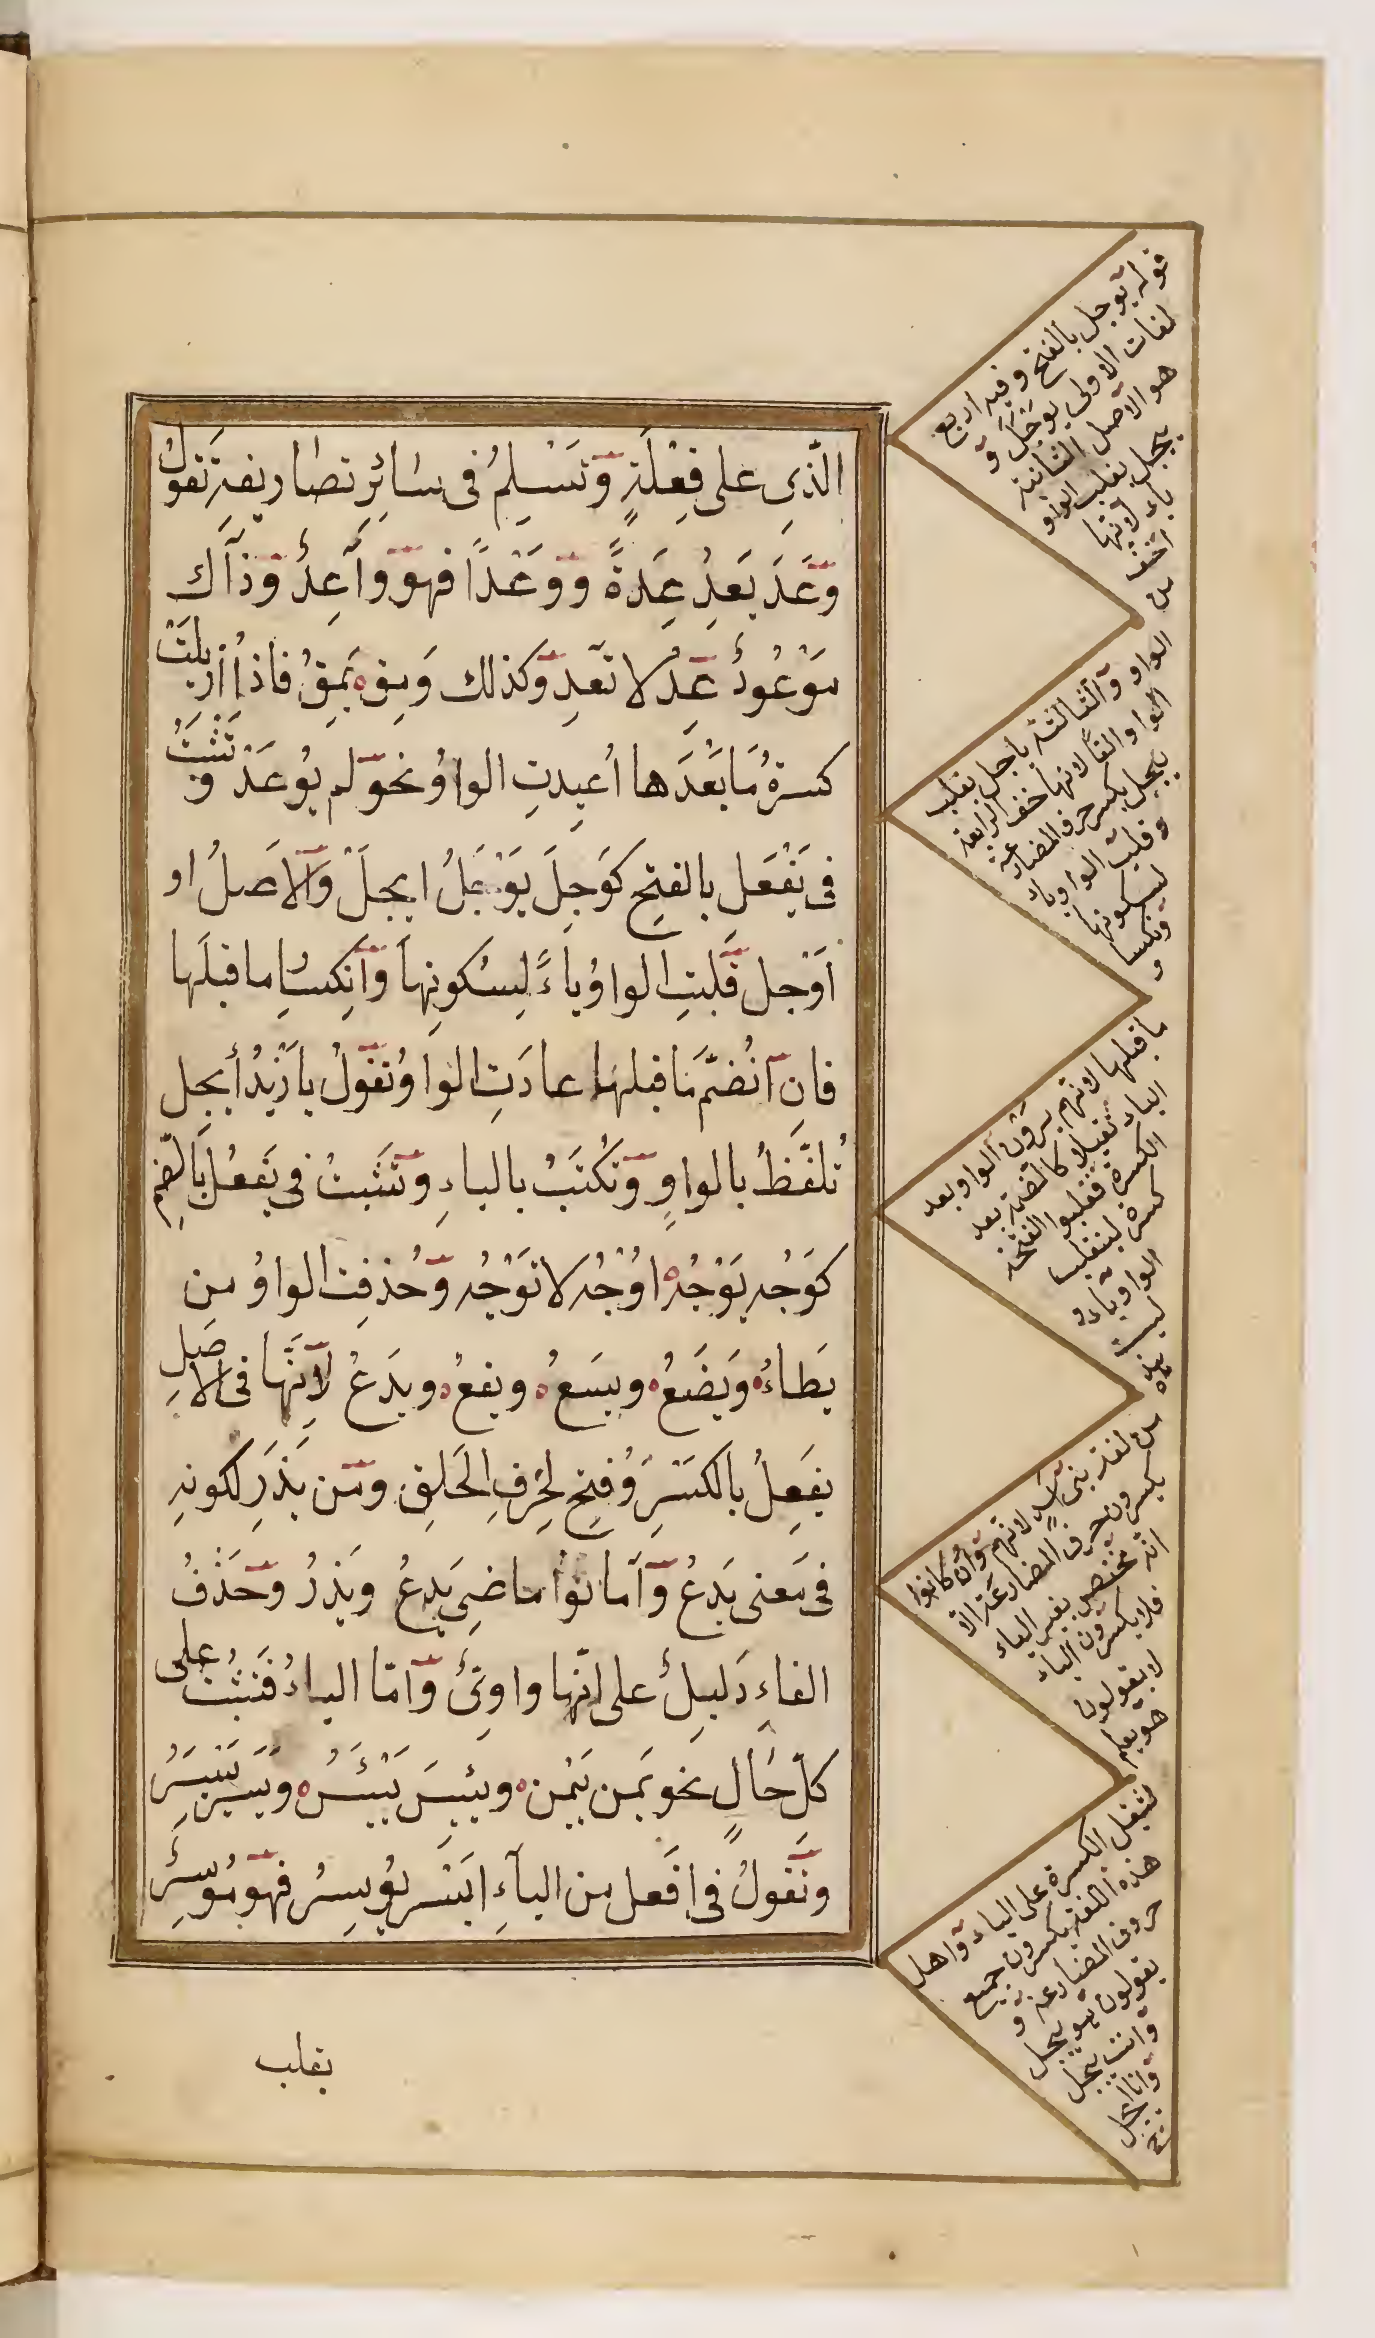 الّذِى على فِعْلَةٍ وَتَسْلِمُ فى سائِرِ تصاريفه تَقولُ
وَعَدَ يَعِدُ عِدَةً وَوَعْداً فهو وَاعِدٌ وَذاك
مَوْعُودٌ عِدْ لا تَعِد وكذلك وَمِقَ يَمِقُ فاذا ازيلَتْ
كسرةُ مَا بَعْدَها اُعيدتِ الواوُ نحو لم يُوعَدْ وَتَثْبَتُ
فى يَفْعَل بالفتحِ كَوَجِلَ يَوْجَلُ ايجلْ وَالاَصلُ او
اَوْجل قلبتِ الواوُ ياءً لِسُكونِها وَانِكسارِ ما قبلَها
فانِ انْضَمَّ مَا قبلها عادَتِ الواوُ تقولُ يا زَيْدُ أيجل
تُلفَّظُ بالواوِ وَتكْتَبُ بالياءِ وَتَثبتُ فى يَفعُل بالضّمِ
كوَجُه يَوْجُهُ اوُجُه لا تَوْجُه وَحُذفِت الواوُ من
يَطاءُ وَيَضَعُ ويسَعُ ويقعُ ويدَعُ لِاَنَّها فى الاصلِ
يفَعِلُ بالكَسْرِ وُفتِح لِحَرفِ الحَلقِ ومَن يَذَرِ لكونهِ
فى مَعنى يَدَعُ وَاَماتوُا ماضِى يَدعُ ويَذرُ وَحَذْفُ
الفاءِ دَليلٌ على انّها واوِىٌّ وَامّا الياءُ فَتثبُتُ على
كلّ حَالٍ نحو يَمَن يَيْمن ويَئِسَ يَيْئَسُ ويَسَر يَيْسِرُ
وتَقولُ فى اِفَعل من اليآءِ ايَسْر يُوسِرُ فهو مُوسِرٌ
يقلب
قوله يوجل بالفتح وفيه اربع
لغات الاولى يوجل و
هو الاصل الثانية
ييجل بقلب الواو
ياء لانّها
اخف
من
الواو وَالثالثة ياجل بقلب
الواو الفًا لانها اخف الرابعة
ييجل بكسر حرف المضارعة
و قلب الواو ياء
لسكونها
وَانكسا
ر
ما قبلها لانهم يرون الواو بعد
الياء ثقيلا كالضمة بعد
الكسرة فقلبوا الفتحة
كسرة لينقلب
الواو ياء و
ليست
هذه
من لغة بنى اسد لانهم وَان كانوا
يكسرون حرف المضارعة الا
انّه مختص بغير الياء
فلا يكسرون الياء
لا يقولون
هو يعلم
لثقل الكسرة على الياء وَاهل
هذه اللغة يكسرون جميع
حروف المضارعة و
يقولون هو ييجل
وَانت تيجل
وَانا ايجل